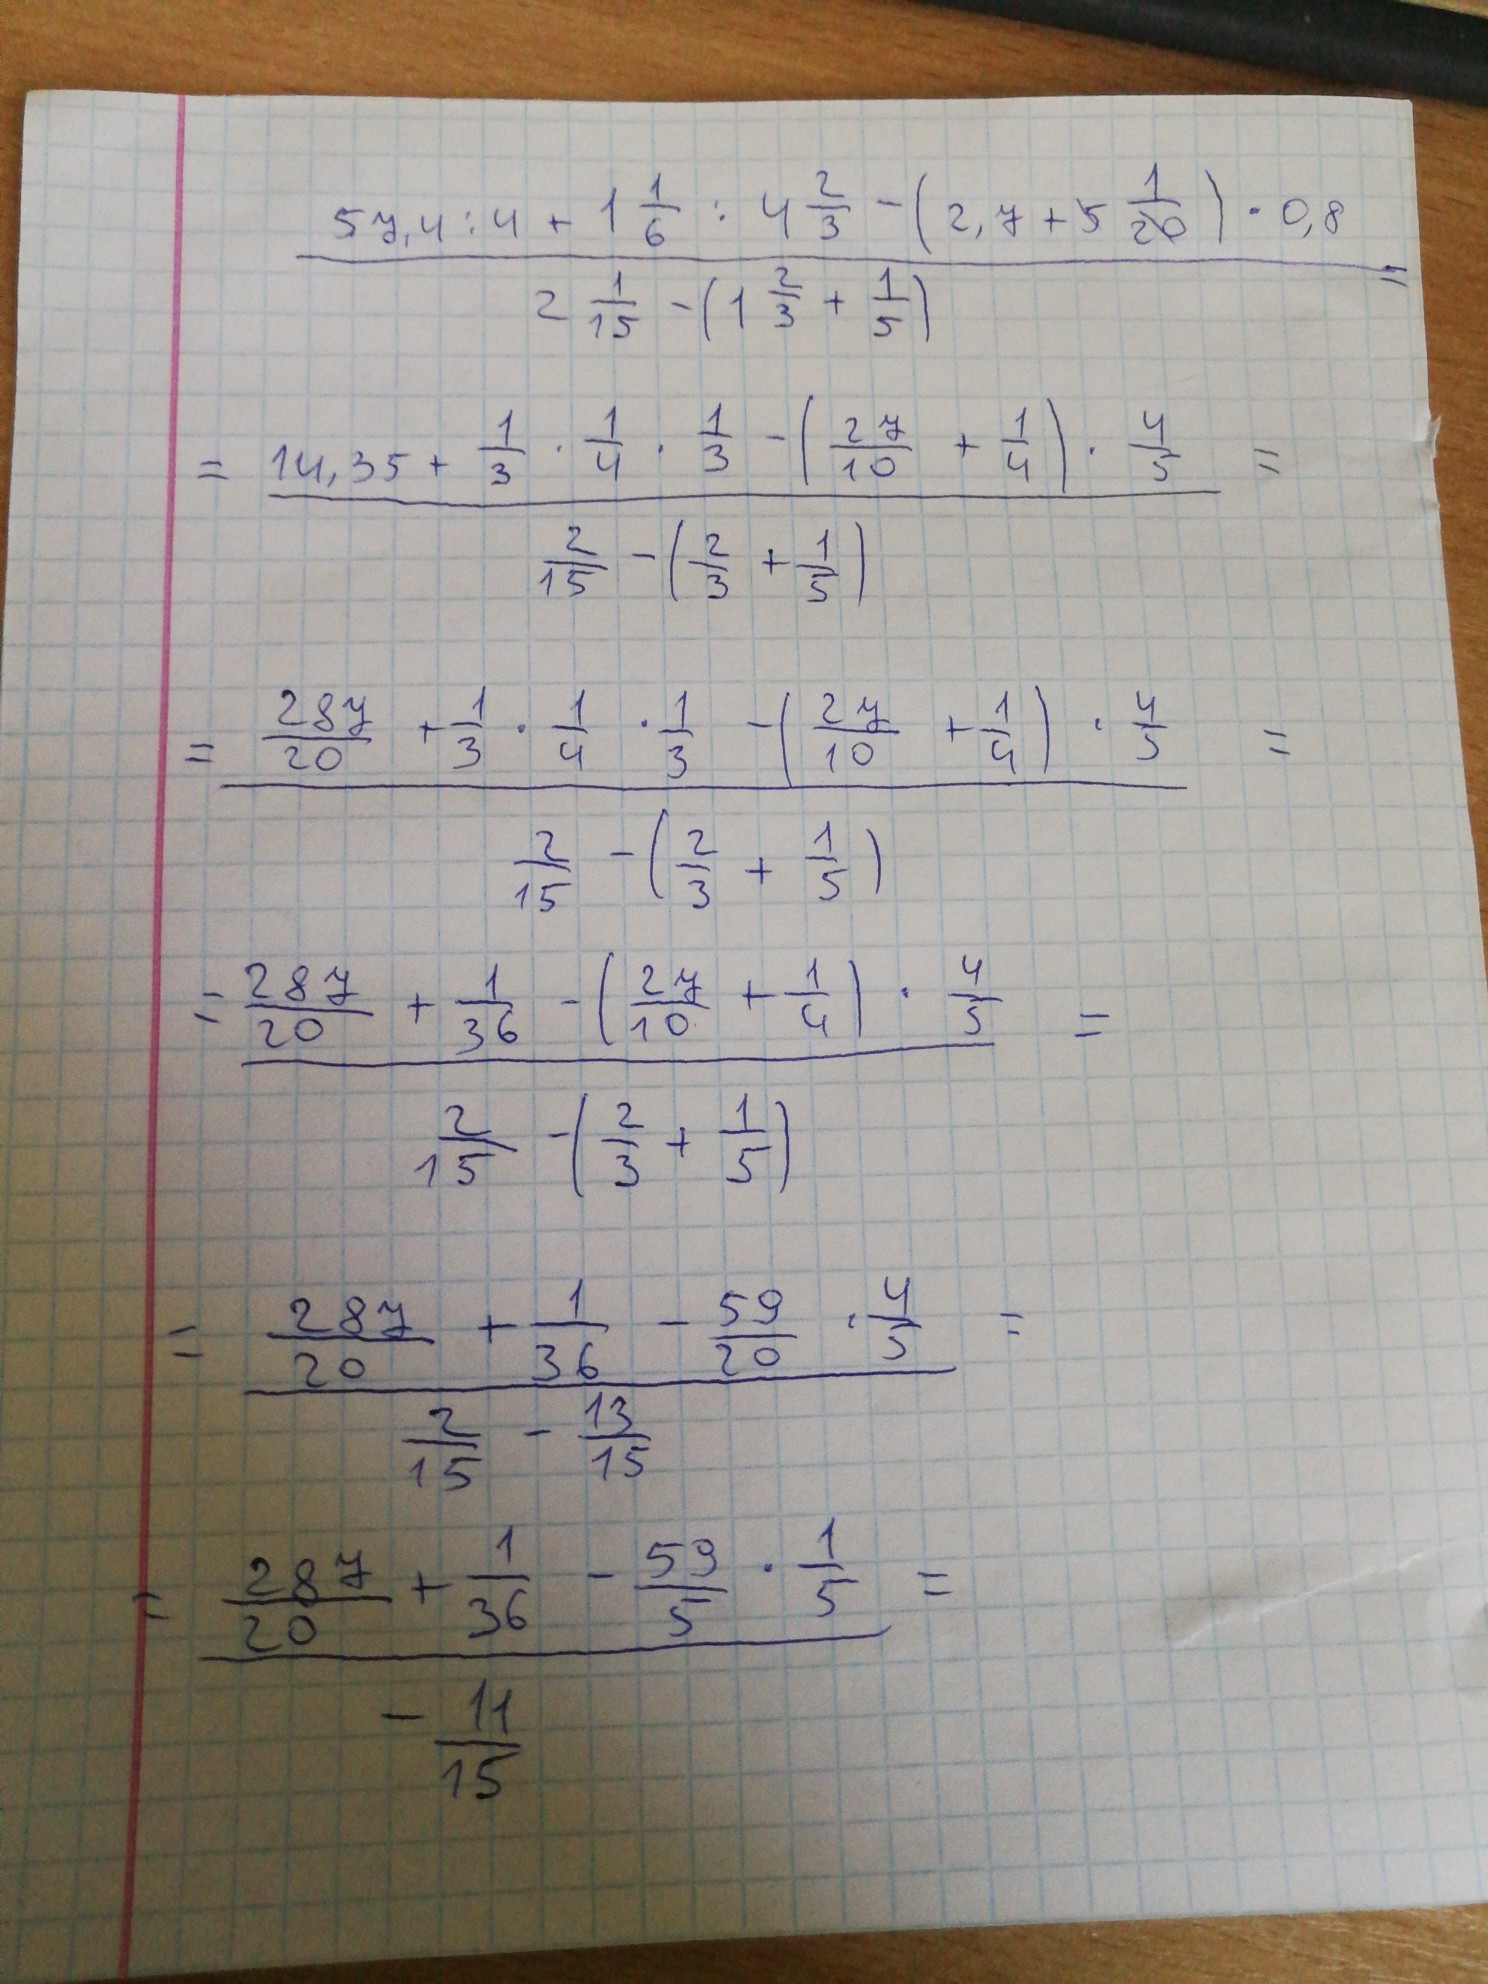 57,4 : 4 + 1 1/6 : 4 2/3 - (2,7 + 5 1/20) · 0,8
2 1/15 - (1 2/3 + 1/5) =
= 14,35 + 1/3 · 1/4 · 1/3 - (27/10 + 1/4) · 4/5 =
2/15 - (2/3 + 1/5)
= 287/20 + 1/3 · 1/4 · 1/3 - (27/10 + 1/4) · 4/5 =
2/15 - (2/3 + 1/5)
= 287/20 + 1/36 - (27/10 + 1/4) · 4/5 =
2/15 - (2/3 + 1/5)
= 287/20 + 1/36 - 59/20 · 4/5 =
2/15 - 13/15
= 287/20 + 1/36 - 59/5 · 1/5 =
- 11/15